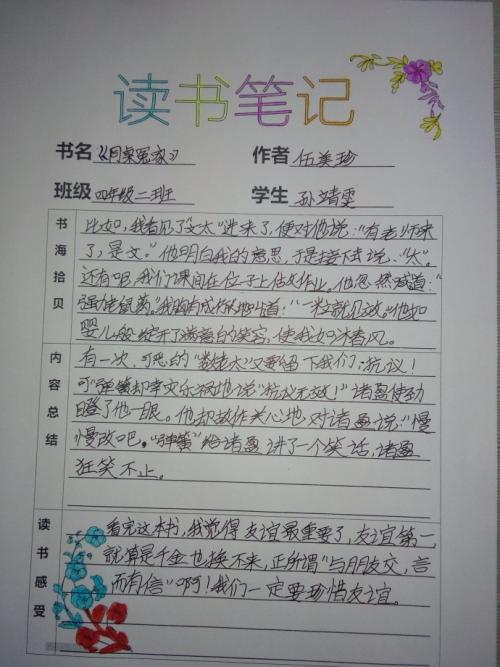 读书笔记
书名《同桌冤家》 作者 伍美珍
班级 四年级二班 学生 孙靖雯
书海拾贝
比如，我看见了"文太"进来了，便对他说："有老师来
了，是文。"他明白我的意思，于是接下去说："太。"
还有呢，我们课间在位子上做作业。他忽然喊道：
婴儿般绽开了满意的笑容，使我如沐春风。
内容总结
有一次，可恶的"数老大"又要留下我们，抗议！
可"弹簧却幸灾乐祸地说"抗议无效！"诸盈使劲
瞪了他一眼。他却故作关心地，对诸盈说："慢
慢改吧。"弹簧"给诸盈讲了一个笑话，诸盈
狂笑不止。
读书感受
看完这本书，我觉得友谊最重要了，友谊第一，
就算是千金也换不来，正所谓"与朋友交，言
而有信"啊！我们一定要珍惜友谊。